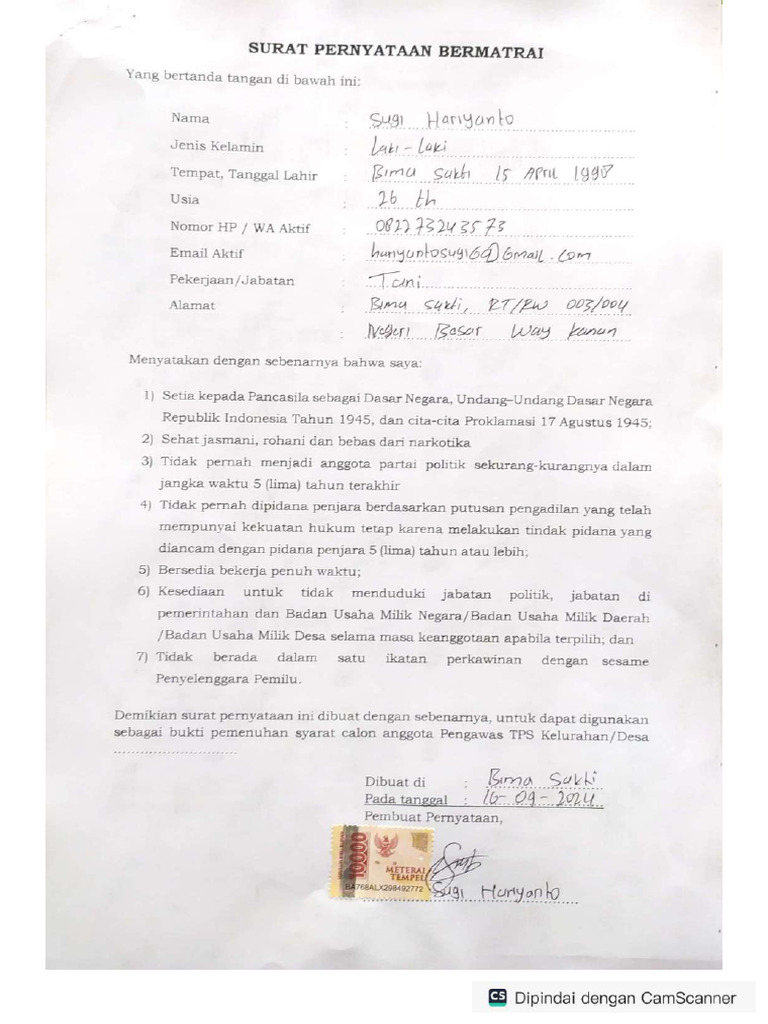 SURAT PERNYATAAN BERMATRAI
Yang bertanda tangan di bawah ini:
Nama : Sugi Hariyanto
Jenis Kelamin : Laki-Laki
Tempat, Tanggal Lahir : Bima Sakti 15 April 1998
Usia : 26 th
Nomor HP / WA Aktif : 082273243573
Email Aktif : hariyantosugi6@Gmail.com
Pekerjaan/Jabatan : Tani
Alamat : Bima Sakti, RT/RW 003/004
: Negeri Besar Way Kanan
Menyatakan dengan sebenarnya bahwa saya:
1) Setia kepada Pancasila sebagai Dasar Negara, Undang–Undang Dasar Negara
Republik Indonesia Tahun 1945, dan cita-cita Proklamasi 17 Agustus 1945;
2) Sehat jasmani, rohani dan bebas dari narkotika
3) Tidak pernah menjadi anggota partai politik sekurang-kurangnya dalam
jangka waktu 5 (lima) tahun terakhir
4) Tidak pernah dipidana penjara berdasarkan putusan pengadilan yang telah
mempunyai kekuatan hukum tetap karena melakukan tindak pidana yang
diancam dengan pidana penjara 5 (lima) tahun atau lebih;
5) Bersedia bekerja penuh waktu;
6) Kesediaan untuk tidak menduduki jabatan politik, jabatan di
pemerintahan dan Badan Usaha Milik Negara/Badan Usaha Milik Daerah
/Badan Usaha Milik Desa selama masa keanggotaan apabila terpilih; dan
7) Tidak berada dalam satu ikatan perkawinan dengan sesame
Penyelenggara Pemilu.
Demikian surat pernyataan ini dibuat dengan sebenarnya, untuk dapat digunakan
sebagai bukti pemenuhan syarat calon anggota Pengawas TPS Kelurahan/Desa
........................
Dibuat di : Bima Sakti
Pada tanggal : 16-09-2024
Pembuat Pernyataan,
10000
METERAI
TEMPEL
BA768ALX298492772
Sugi Hariyanto
CS Dipindai dengan CamScanner